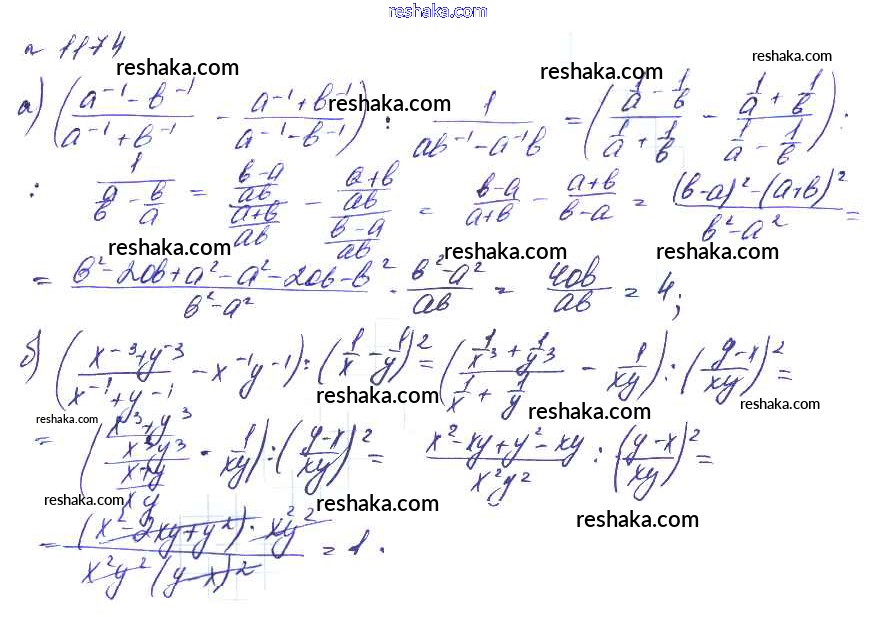 reshaka.com
№ 1174
reshaka.com reshaka.com reshaka.com
а) ((a⁻¹ - b⁻¹)/(a⁻¹ + b⁻¹) - (a⁻¹ + b⁻¹)/(a⁻¹ - b⁻¹)) : 1/(ab⁻¹ - a⁻¹b) = ((1/a - 1/b)/(1/a + 1/b) - (1/a + 1/b)/(1/a - 1/b)) :
reshaka.com reshaka.com
: 1/(a/b - b/a) = ((b-a)/ab)/((a+b)/ab) - ((a+b)/ab)/((b-a)/ab) = (b-a)/(a+b) - (a+b)/(b-a) = ((b-a)² - (a+b)²)/(b² - a²) =
reshaka.com reshaka.com reshaka.com
= (b² - 2ab + a² - a² - 2ab - b²)/(b² - a²) · (b² - a²)/ab = 4ab/ab = 4;
б) ((x⁻³ + y⁻³)/(x⁻¹ + y⁻¹) - x⁻¹y⁻¹) : (1/x - 1/y)² = ((1/x³ + 1/y³)/(1/x + 1/y) - 1/xy) : ((y-x)/xy)² =
reshaka.com reshaka.com reshaka.com reshaka.com
= (((x³ + y³)/x³y³)/((x+y)/xy) - 1/xy) : ((y-x)/xy)² = (x² - xy + y² - xy)/x²y² : ((y-x)/xy)² =
reshaka.com reshaka.com reshaka.com
= ((x² - 2xy + y²) · x²y²)/(x²y²(y-x)²) = 1.